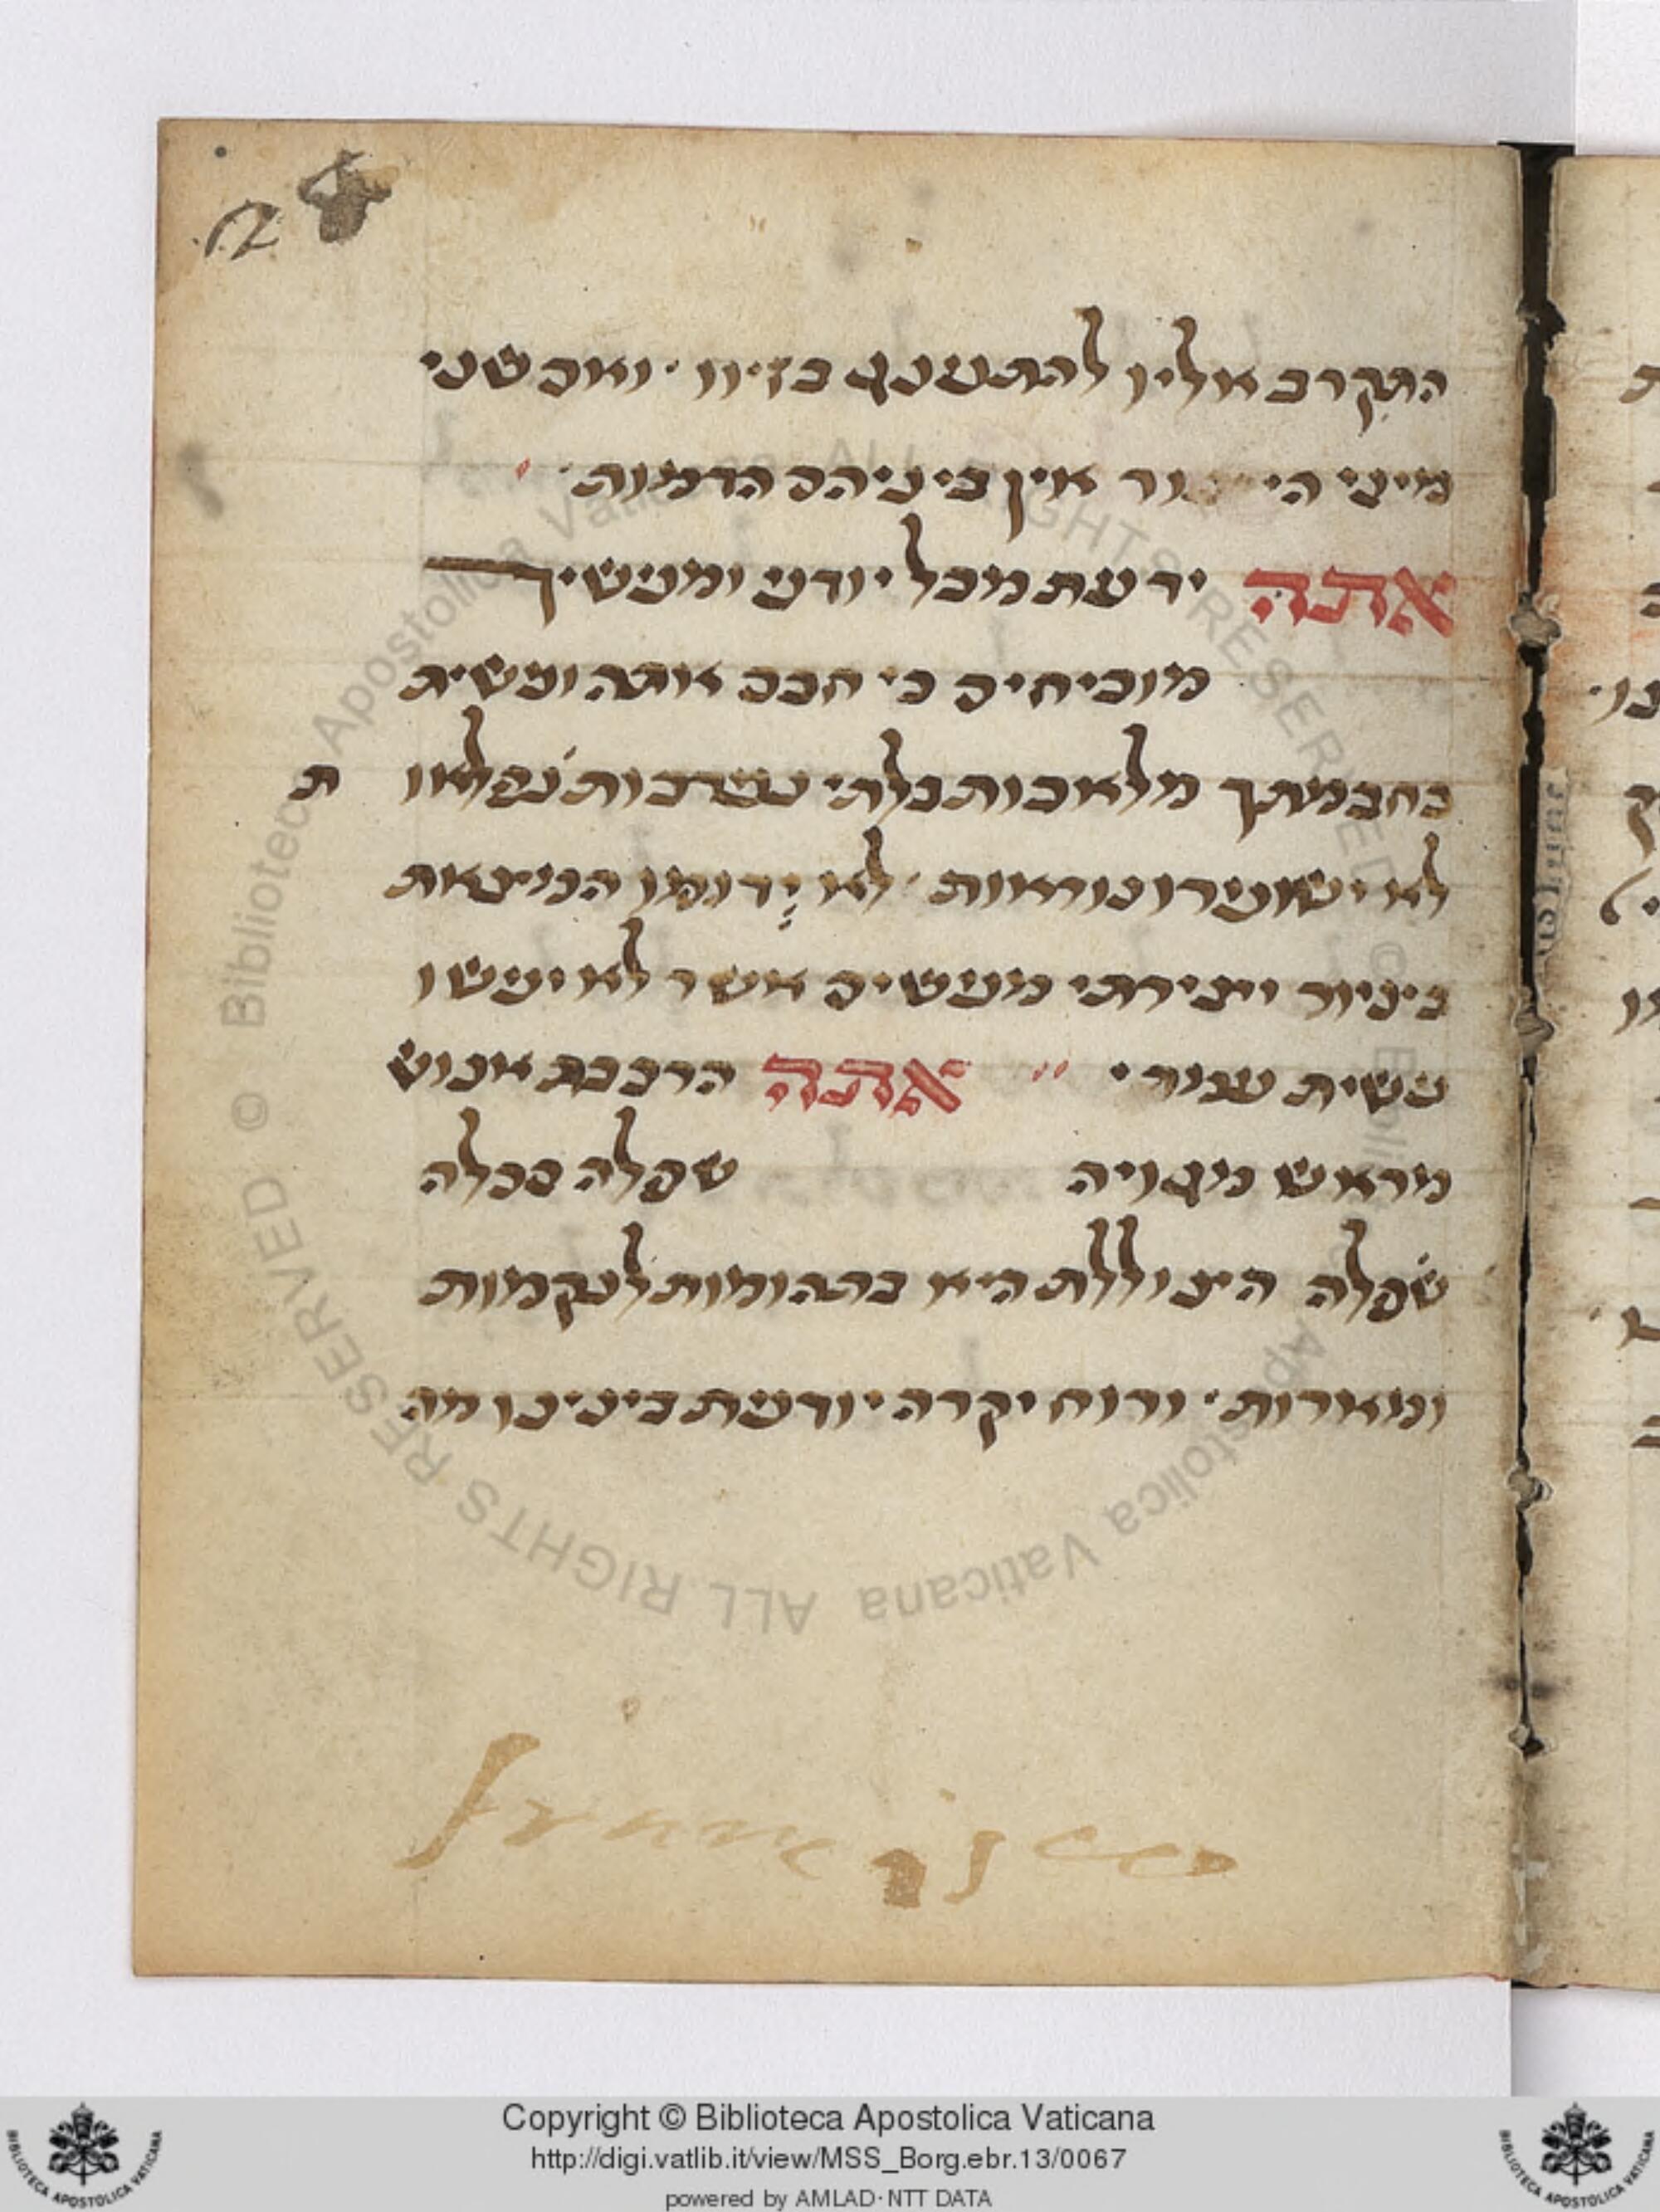 התקרב אליו להתענג בזיוו · ואם שני
מיני הי ור אין ביניהם הדמות ·
אתה ידעת מכל יודע ומעשיך
מוכיחים כי חכם אתה ועשית
בחכמתך מלאכות בלתי נערכות נפלאו ת
לא ישוערו נוראות · לא ידומו הנמצאות
בציור ויצירתי מעשים אשר לא יעשו
עשית צורי · אתה הרכבת אנוש
מראש מגויה שפלה ככלה
שפלה הצוללת היא בתהומות לנקמות
ומאורות · ורוח יקרה יודעת בינינו מה
Francisco
Copyright © Biblioteca Apostolica Vaticana
http://digi.vatlib.it/view/MSS_Borg.ebr.13/0067
powered by AMLAD·NTT DATA